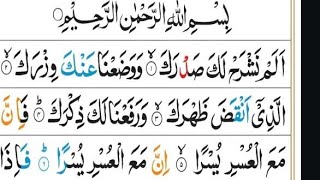 بِسْمِ اللّٰهِ الرَّحْمٰنِ الرَّحِيْمِ
اَلَمْ نَشْرَحْ لَكَ صَدْرَكَ ۙ۱ وَوَضَعْنَا عَنْكَ وِزْرَكَ ۙ۲
الَّذِیْۤ اَنْقَضَ ظَهْرَكَ ۙ۳ وَرَفَعْنَا لَكَ ذِكْرَكَ ؕ۴ فَاِنَّ
مَعَ الْعُسْرِ يُسْرًا ۙ۵ اِنَّ مَعَ الْعُسْرِ يُسْرًا ؕ۶ فَاِذَا